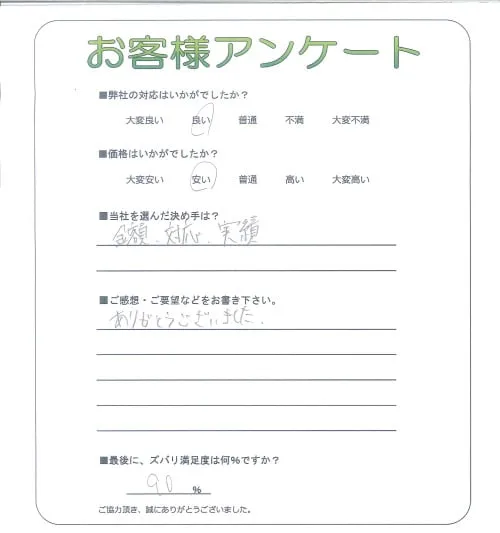 お客様アンケート
■弊社の対応はいかがでしたか？
大変良い 良い 普通 不満 大変不満
■価格はいかがでしたか？
大変安い 安い 普通 高い 大変高い
■当社を選んだ決め手は？
金額、対応、実績
■ご感想・ご要望などをお書き下さい。
ありがとうございました.
■最後に、ズバリ満足度は何％ですか？
90 %
ご協力頂き、誠にありがとうございました。